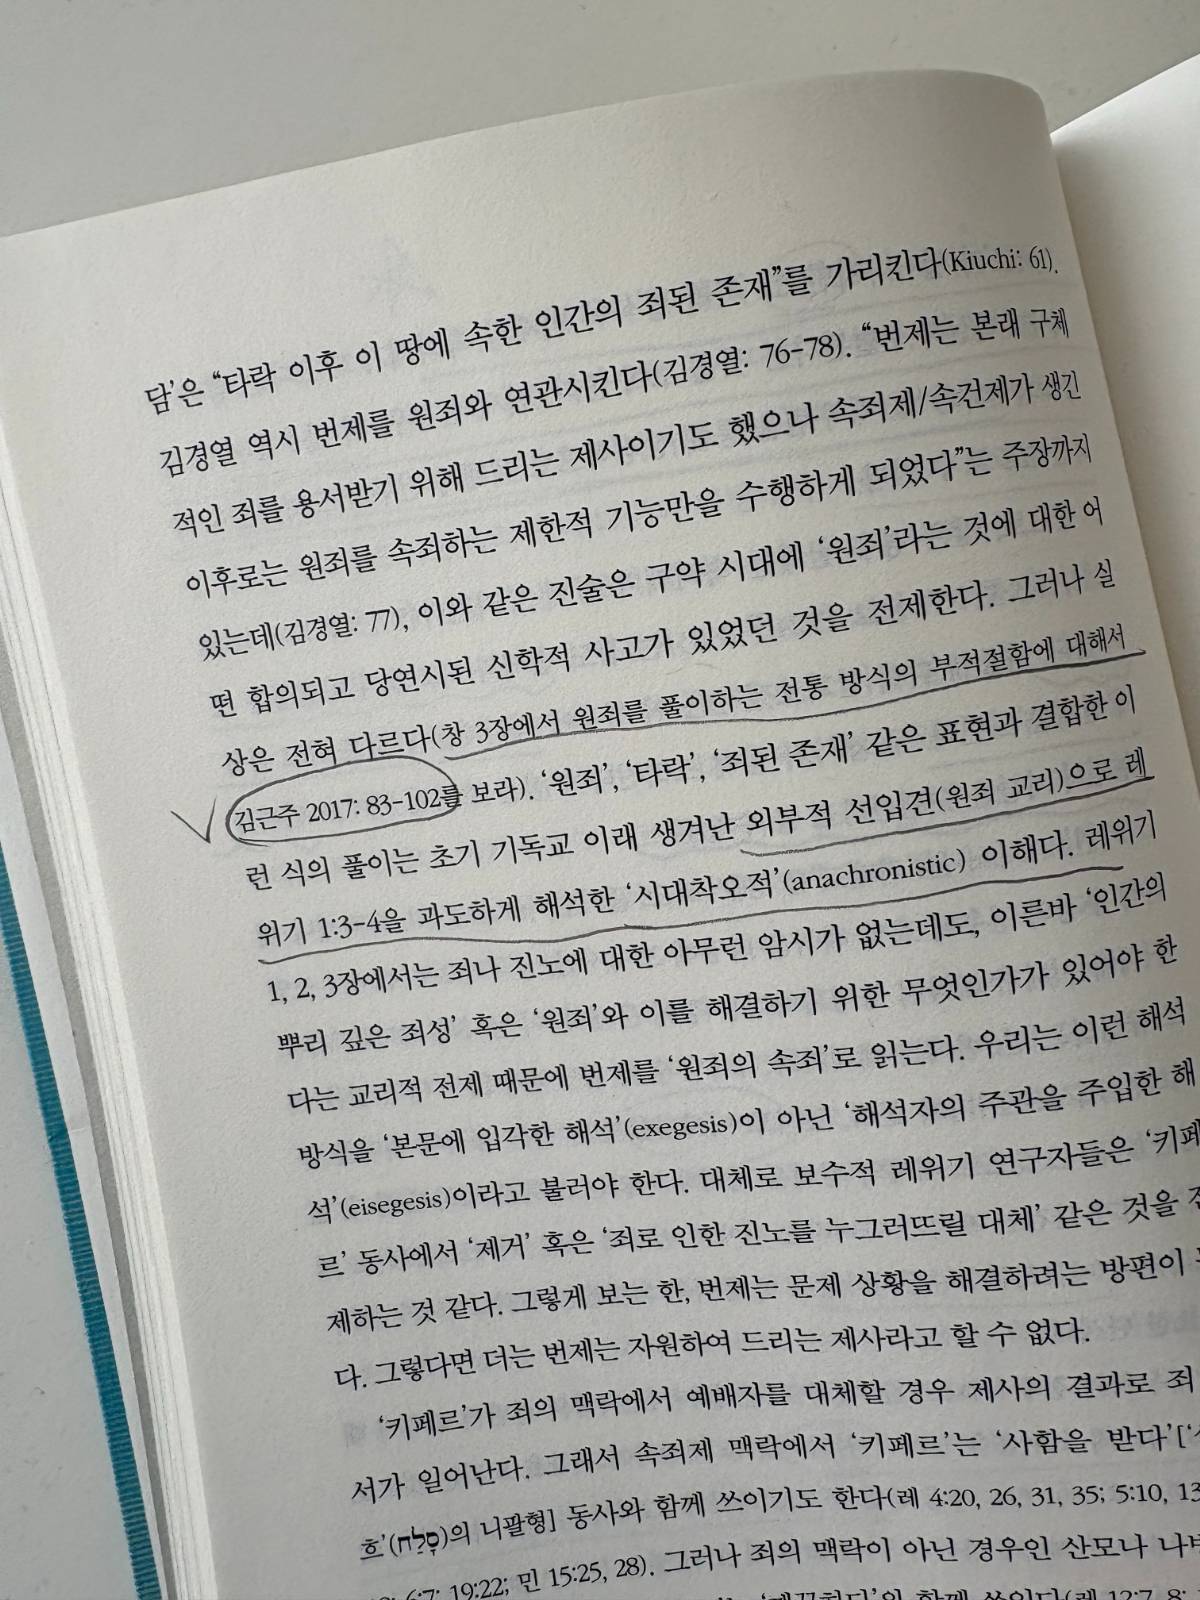 담’은 “타락 이후 이 땅에 속한 인간의 죄된 존재”를 가리킨다(Kiuchi: 61).
김경열 역시 번제를 원죄와 연관시킨다(김경열: 76-78). “번제는 본래 구체
적인 죄를 용서받기 위해 드리는 제사이기도 했으나 속죄제/속건제가 생긴
이후로는 원죄를 속죄하는 제한적 기능만을 수행하게 되었다”는 주장까지
있는데(김경열: 77), 이와 같은 진술은 구약 시대에 ‘원죄’라는 것에 대한 어
떤 합의되고 당연시된 신학적 사고가 있었던 것을 전제한다. 그러나 실
상은 전혀 다르다(창 3장에서 원죄를 풀이하는 전통 방식의 부적절함에 대해서
김근주 2017: 83-102를 보라). ‘원죄’, ‘타락’, ‘죄된 존재’ 같은 표현과 결합한 이
런 식의 풀이는 초기 기독교 이래 생겨난 외부적 선입견(원죄 교리)으로 레
위기 1:3-4을 과도하게 해석한 ‘시대착오적’(anachronistic) 이해다. 레위기
1, 2, 3장에서는 죄나 진노에 대한 아무런 암시가 없는데도, 이른바 ‘인간의
뿌리 깊은 죄성’ 혹은 ‘원죄’와 이를 해결하기 위한 무엇인가가 있어야 한
다는 교리적 전제 때문에 번제를 ‘원죄의 속죄’로 읽는다. 우리는 이런 해석
방식을 ‘본문에 입각한 해석’(exegesis)이 아닌 ‘해석자의 주관을 주입한 해
석’(eisegesis)이라고 불러야 한다. 대체로 보수적 레위기 연구자들은 ‘키페
르’ 동사에서 ‘제거’ 혹은 ‘죄로 인한 진노를 누그러뜨릴 대체’ 같은 것을 전
제하는 것 같다. 그렇게 보는 한, 번제는 문제 상황을 해결하려는 방편이
다. 그렇다면 더는 번제는 자원하여 드리는 제사라고 할 수 없다.
‘키페르’가 죄의 맥락에서 예배자를 대체할 경우 제사의 결과로 죄
서가 일어난다. 그래서 속죄제 맥락에서 ‘키페르’는 ‘사함을 받다’[‘
흐’(סָלַח)의 니팔형] 동사와 함께 쓰이기도 한다(레 4:20, 26, 31, 35; 5:10, 13
6:7; 19:22; 민 15:25, 28). 그러나 죄의 맥락이 아닌 경우인 산모나 나병
함께 쓰인다(레 12:7, 8;